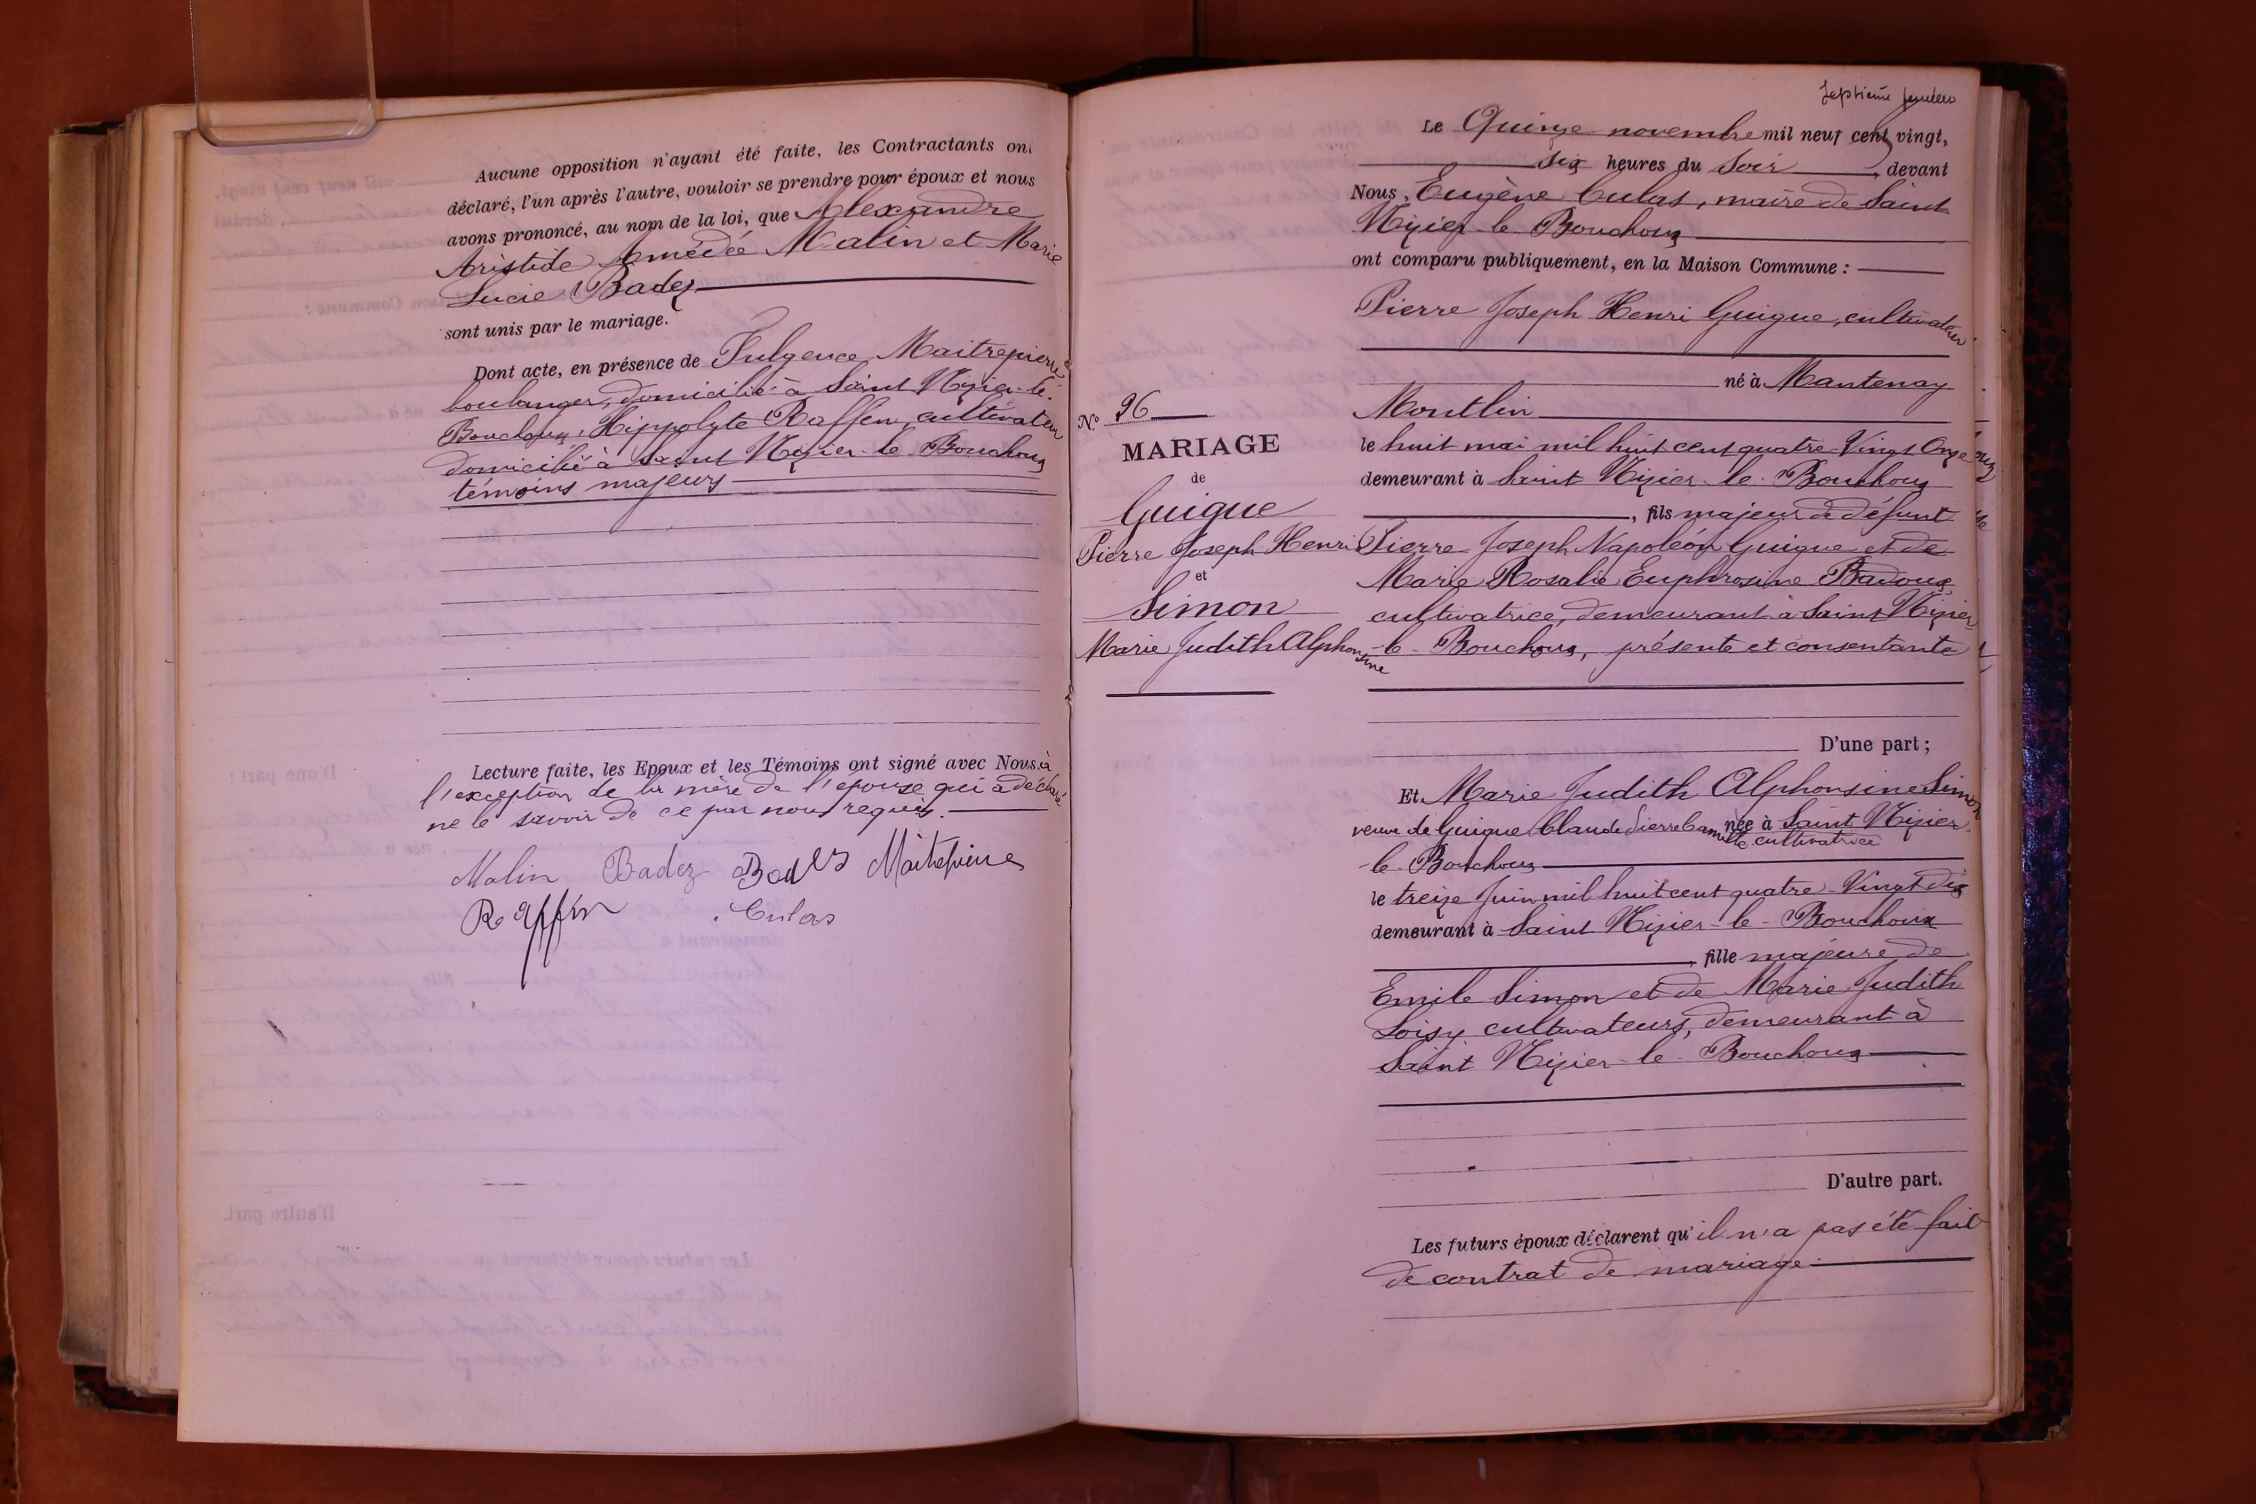 Aucune opposition n'ayant été faite, les Contractants ont
déclaré, l'un après l'autre, vouloir se prendre pour époux et nous
avons prononcé, au nom de la loi, que Alexandre
Aristide Amédée Malin et Marie
Lucie Badez
sont unis par le mariage.
Dont acte, en présence de Fulgence Maitrepierre
boulanger, domicilié à Saint Nizier-le-
Bouchoux, Hippolyte Raffin, cultivateur
domicilié à Saint Nizier-le Bouchoux
témoins majeurs
Lecture faite, les Epoux et les Témoins ont signé avec Nous à
l'exception de la mère de l'épouse qui a déclaré
ne le savoir de ce par nous requis.
Malin Badez Badez Maitrepierre
Raffin Culas
Septième
Le Quinze novembre mil neuf cent vingt,
six heures du soir, devant
Nous, Eugène Culas, maire de Saint
Nizier-le Bouchoux
ont comparu publiquement, en la Maison Commune :
Pierre Joseph Henri Guigue, cultivateur
né à Mantenay
Montlin
le huit mai mil huit cent quatre-Vingt Onze
demeurant à Saint Nizier-le-Bouchoux
, fils majeur de défunt
Pierre Joseph Napoléon Guigue et de
Marie Rosalie Euphrosine Badoux,
cultivatrice, demeurant à Saint Nizier-
-le-Bouchoux, présente et consentante
D'une part ;
N° 26
MARIAGE
de
Guigue
Pierre Joseph Henri
et
Simon
Marie Judith Alphonsine
Et Marie Judith Alphonsine Simon
veuve de Guigue Claude Pierre Camille née à Saint Nizier-
cultivatrice
-le-Bouchoux
le treize Juin mil huit cent quatre-Vingt dix
demeurant à Saint Nizier-le-Bouchoux
, fille majeure de
Emile Simon et de Marie Judith
Loisy cultivateurs, demeurant à
Saint Nizier-le-Bouchoux
D'autre part.
Les futurs époux déclarent qu'il n'a pas été fait
de contrat de mariage.